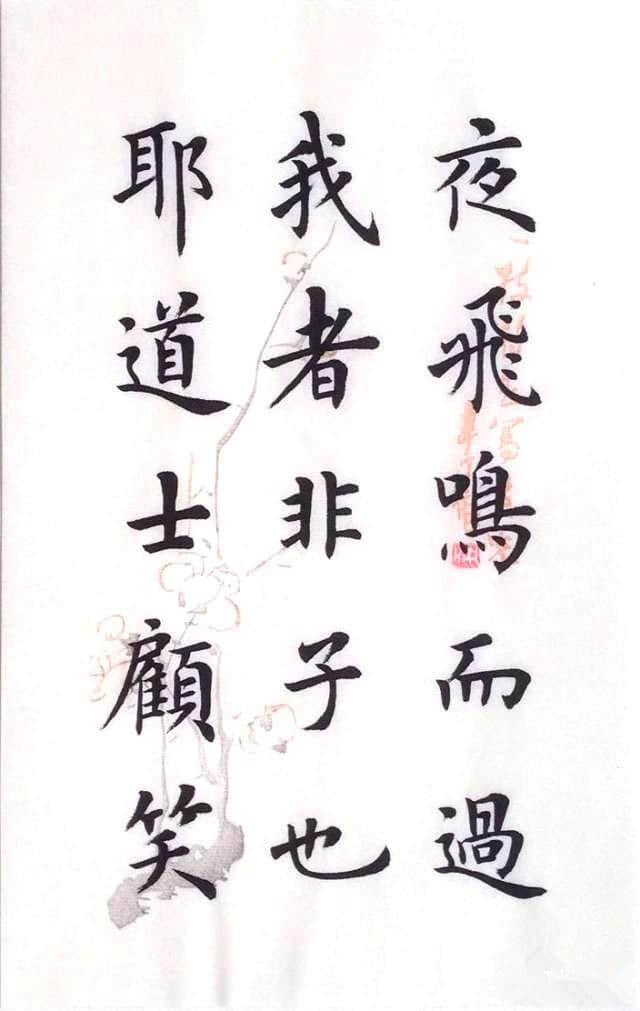 夜飛鳴而過
我者非子也
耶道士顧笑